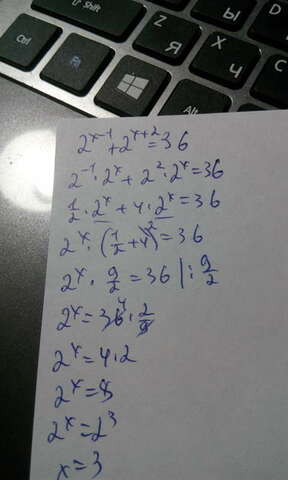 Shift
Ctrl
Fn
Alt
Z
Я
X
Ч
Ы
2^{x-1}+2^{x+2}=36
2^{-1}·2^x+2^2·2^x=36
1/2·2^x+4·2^x=36
2^x·(1/2+4)=36
2^x·9/2=36 |:9/2
2^x=36·2/9
2^x=4·2
2^x=8
2^x=2^3
x=3